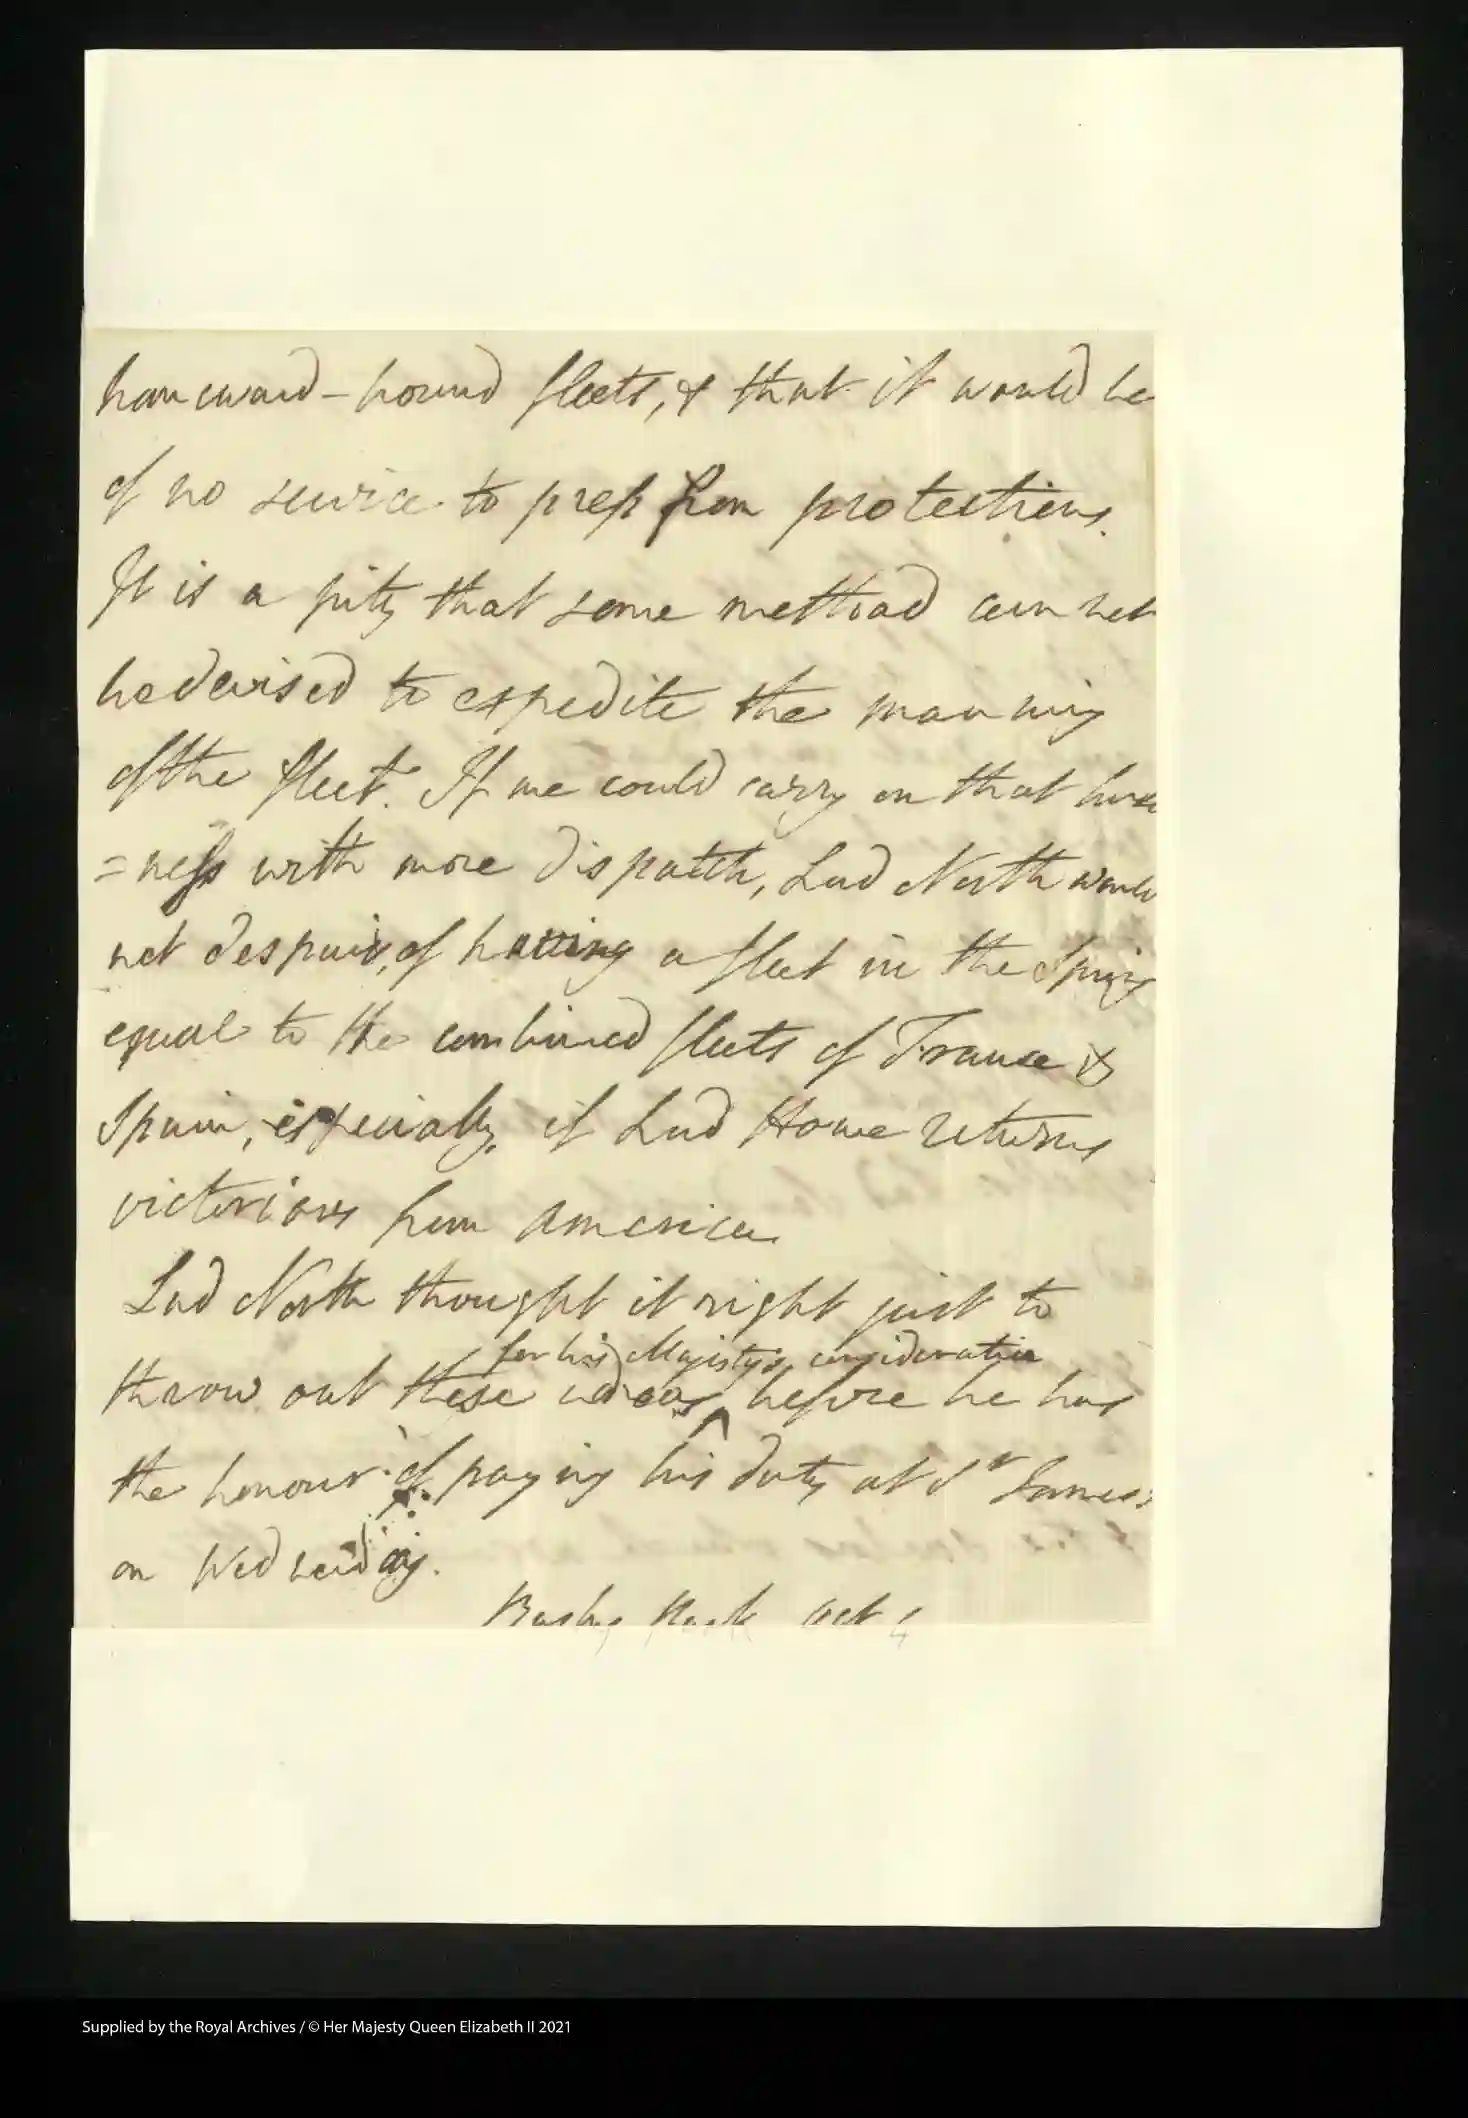 homeward-bound fleets, & that it would be
of no service to press from protections.
It is a pity that some method can not
be devised to expedite the manning
of the fleet. If we could carry on that busi
=ness with more dispatch, Lord North would
not despair, of having a fleet in the Spring
equal to the combined fleets of France &
Spain, especially, if Lord Howe returns
victorious from America.
Lord North thought it right just to
for his Majesty's consideration
throw out these ideas ^ before he has
the honour of paying his duty at St James's
on Wednesday.
Bushy Park Oct 4
Supplied by the Royal Archives / © Her Majesty Queen Elizabeth II 2021